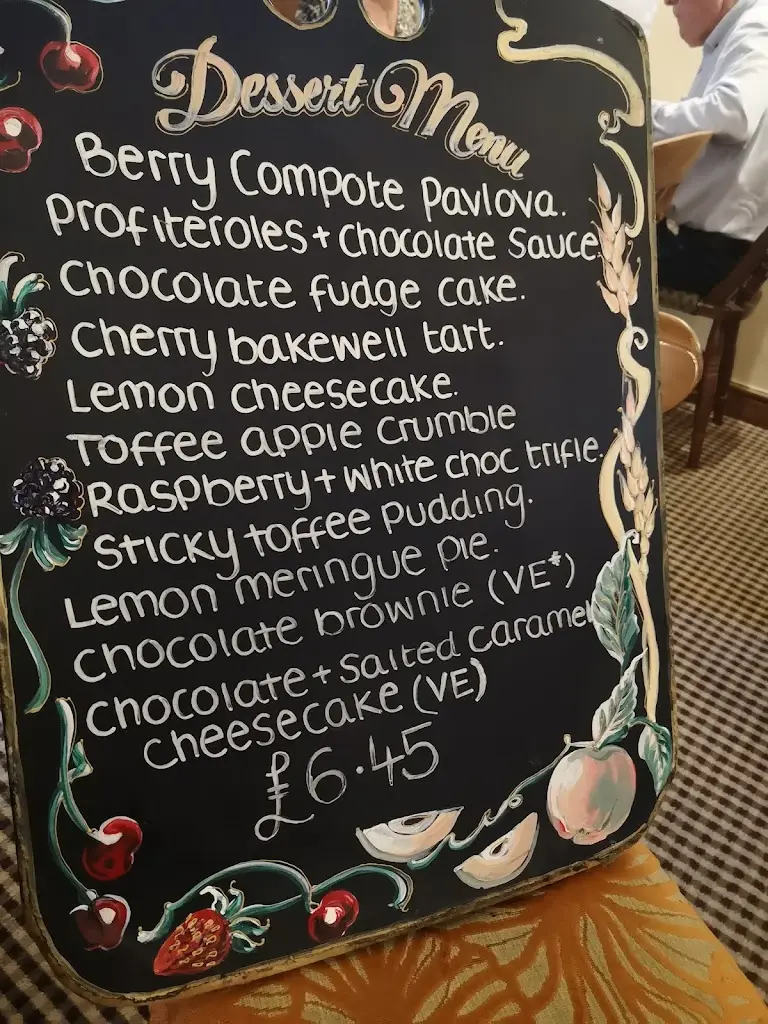 Dessert Menu
Berry Compote Pavlova.
Profiteroles + Chocolate Sauce
Chocolate fudge cake.
Cherry bakewell tart.
Lemon cheesecake.
Toffee apple Crumble
Raspberry + white choc trifle.
Sticky toffee pudding.
Lemon meringue pie.
Chocolate brownie (VE*)
Chocolate + Salted Caramel
Cheesecake (VE)
£6.45